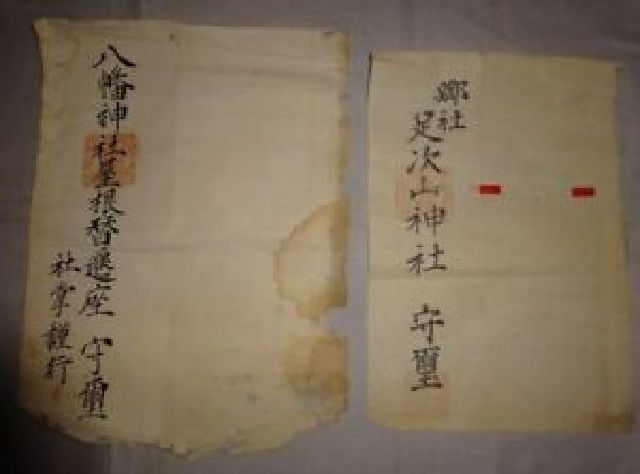 郷社
足次山神社 守璽
八幡神社屋根替遷座 守璽
社掌謹行